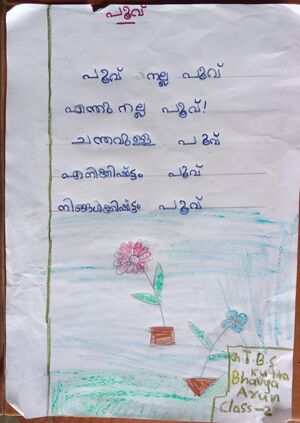 പൂവ്
പൂവ് നല്ല പൂവ്
എന്തു നല്ല പൂവ്!
ചന്തമുള്ള പൂവ്
എനിക്കിഷ്ടം പൂവ്
നിങ്ങൾക്കിഷ്ടം പൂവ്
T.B.S
Bhavya
Arun
Class-2